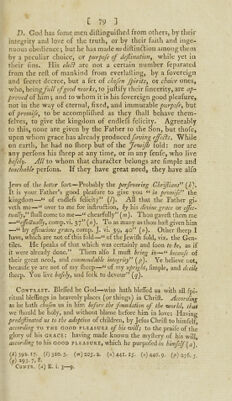 [ 79 ]
D. God has some men distinguished from others, by their
integrity and love of the truth, or by their faith and inge-
nuous obedience; but he has made no distinction among them
by a peculiar choice, or purpose of destination, while yet in
their sins. His elect are not a certain number separated
from the rest of mankind from everlasting, by a sovereign
and secret decree, but a set of chosen spirits, or choice ones,
who, being full of good works, to justify their sincerity, are ap-
proved of him; and to whom it is his sovereign good pleasure,
not in the way of eternal, fixed, and immutable purpose, but
of promise, to be accomplished as they shall behave them-
selves, to give the kingdom of endless felicity. Agreeably
to this, none are given by the Father to the Son, but those,
upon whom grace has already produced saving effects. While
on earth, he had no sheep but of the Jewish fold: nor are
any persons his sheep at any time, or in any sense, who live
basely. All to whom that character belongs are simple and
teachable persons. If they have great need, they have also
Jews of the better sort—Probably the persevering Christians" (k).
It is your Father's good pleasure to give you "in promise" the
kingdom—" of endless felicity" (l). All that the Father gi-
veth me—" over to me for instruction, by his divine grace or effec-
tually," shall come to me—" chearfully" (m). Thou gavest them me
—" effectually, comp. vi. 37" (n). To as many as thou hast given him
—" by efficacious grace, comp. J. vi. 39, 40" (o). Other sheep I
have, which are not of this fold—" of the Jewish fold, viz. the Gen-
tiles. He speaks of that which was certainly and soon to be, as if
it were already done." Them also I must bring in—" because of
their great need, and commendable integrity" (p). Ye believe not
because ye are not of my sheep—" of my upright, simple, and docile
sheep. You live basely, and seek to devour" (q).
CONTRAST. Blessed be God—who hath blessed us with all spi-
ritual blessings in heavenly places (or things) in Christ. According
as he hath chosen us in him before the foundation of the world, that
we should be holy, and without blame before him in love: Having
predestinated us to the adoption of children, by Jesus Christ to himself,
according TO THE GOOD PLEASURE of his will; to the praise of the
glory of his GRACE: having made known the mystery of his will,
according to his GOOD PLEASURE, which he purposed in himself (a).